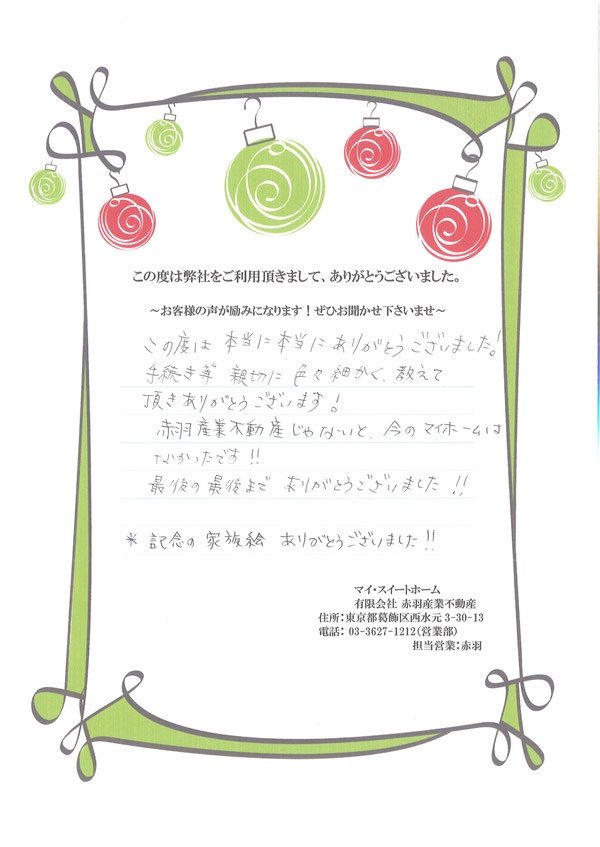 この度は弊社をご利用頂きまして、ありがとうございました。
～お客様の声が励みになります！ぜひお聞かせ下さいませ～
この度は 本当に本当にありがとうございました!
手続き等 親切に 色々細かく、教えて
頂きありがとうございます!
赤羽産業不動産じゃないと、今のマイホームは
なかったです!!
最後の最後まで ありがとうございました!!
* 記念の家族絵 ありがとうございました!!
マイ・スイートホーム
有限会社 赤羽産業不動産
住所：東京都葛飾区西水元 3-30-13
電話： 03-3627-1212（営業部）
担当営業：赤羽